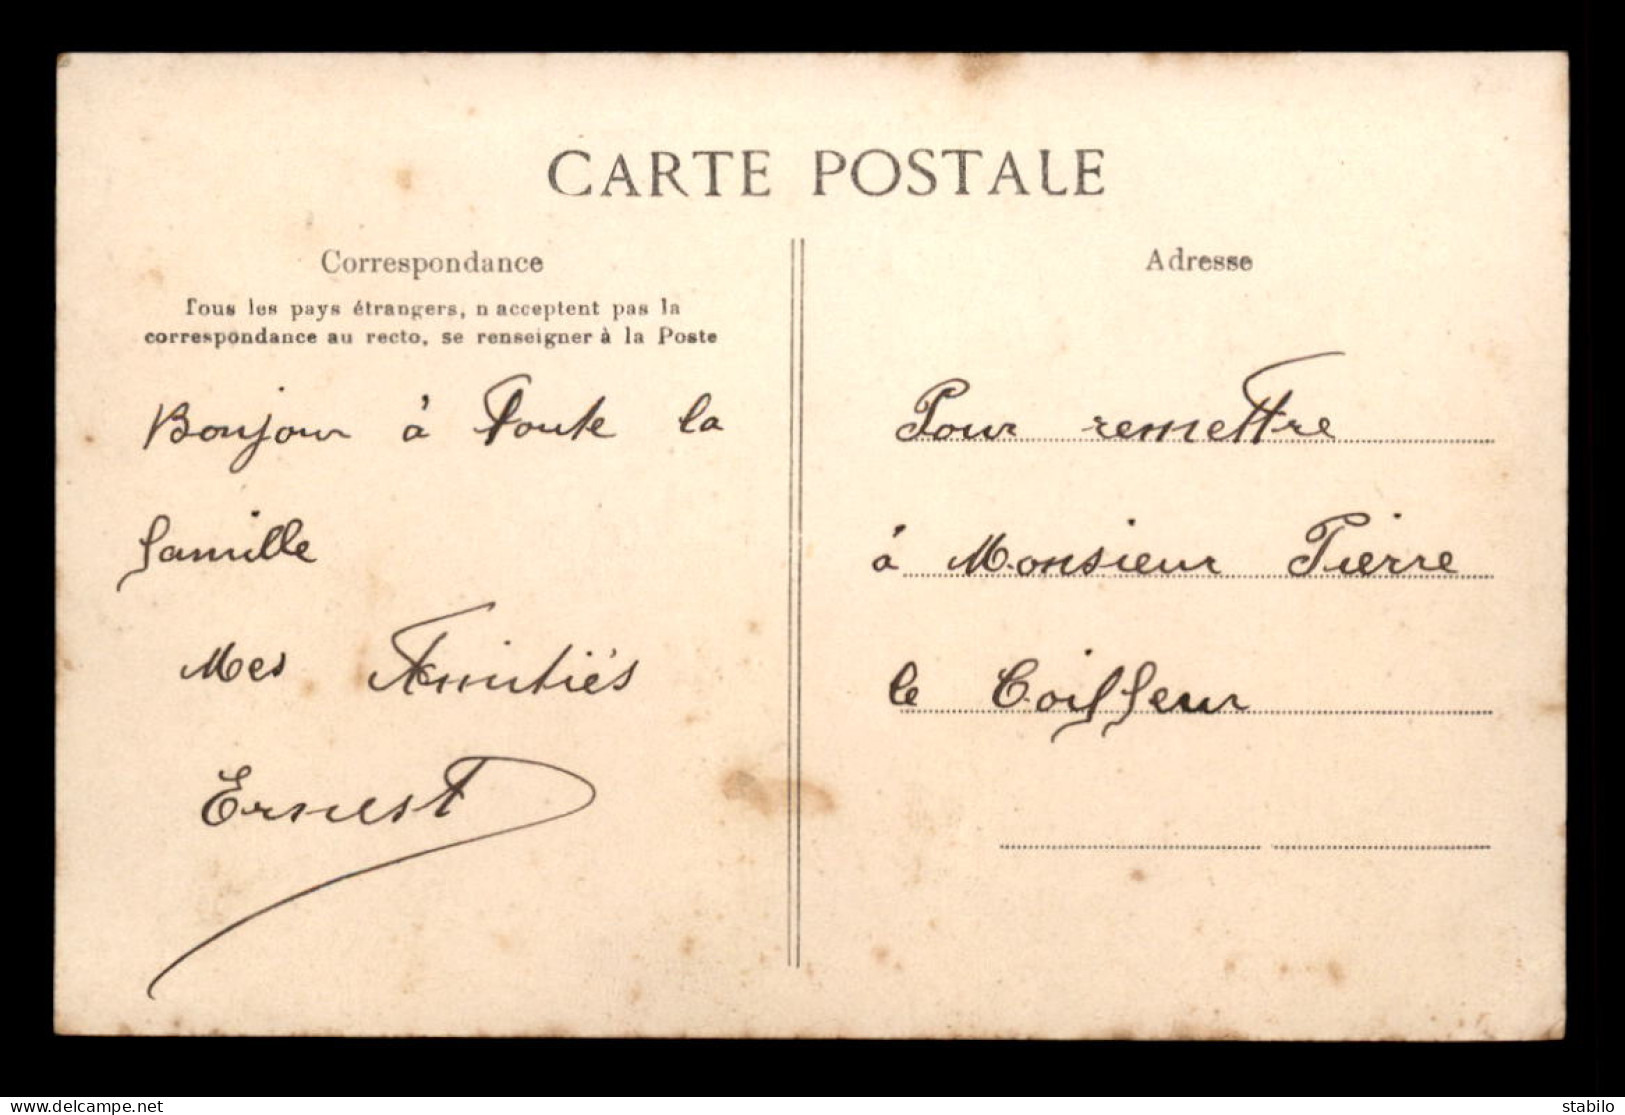 CARTE POSTALE
Correspondance
Tous les pays étrangers, n acceptent pas la
correspondance au recto, se renseigner à la Poste
Bonjour à Toute la
famille
Mes Amitiés
Ernest
Adresse
Pour remettre
à Monsieur Pierre
le Coiffeur
www.delcampe.net
stabilo